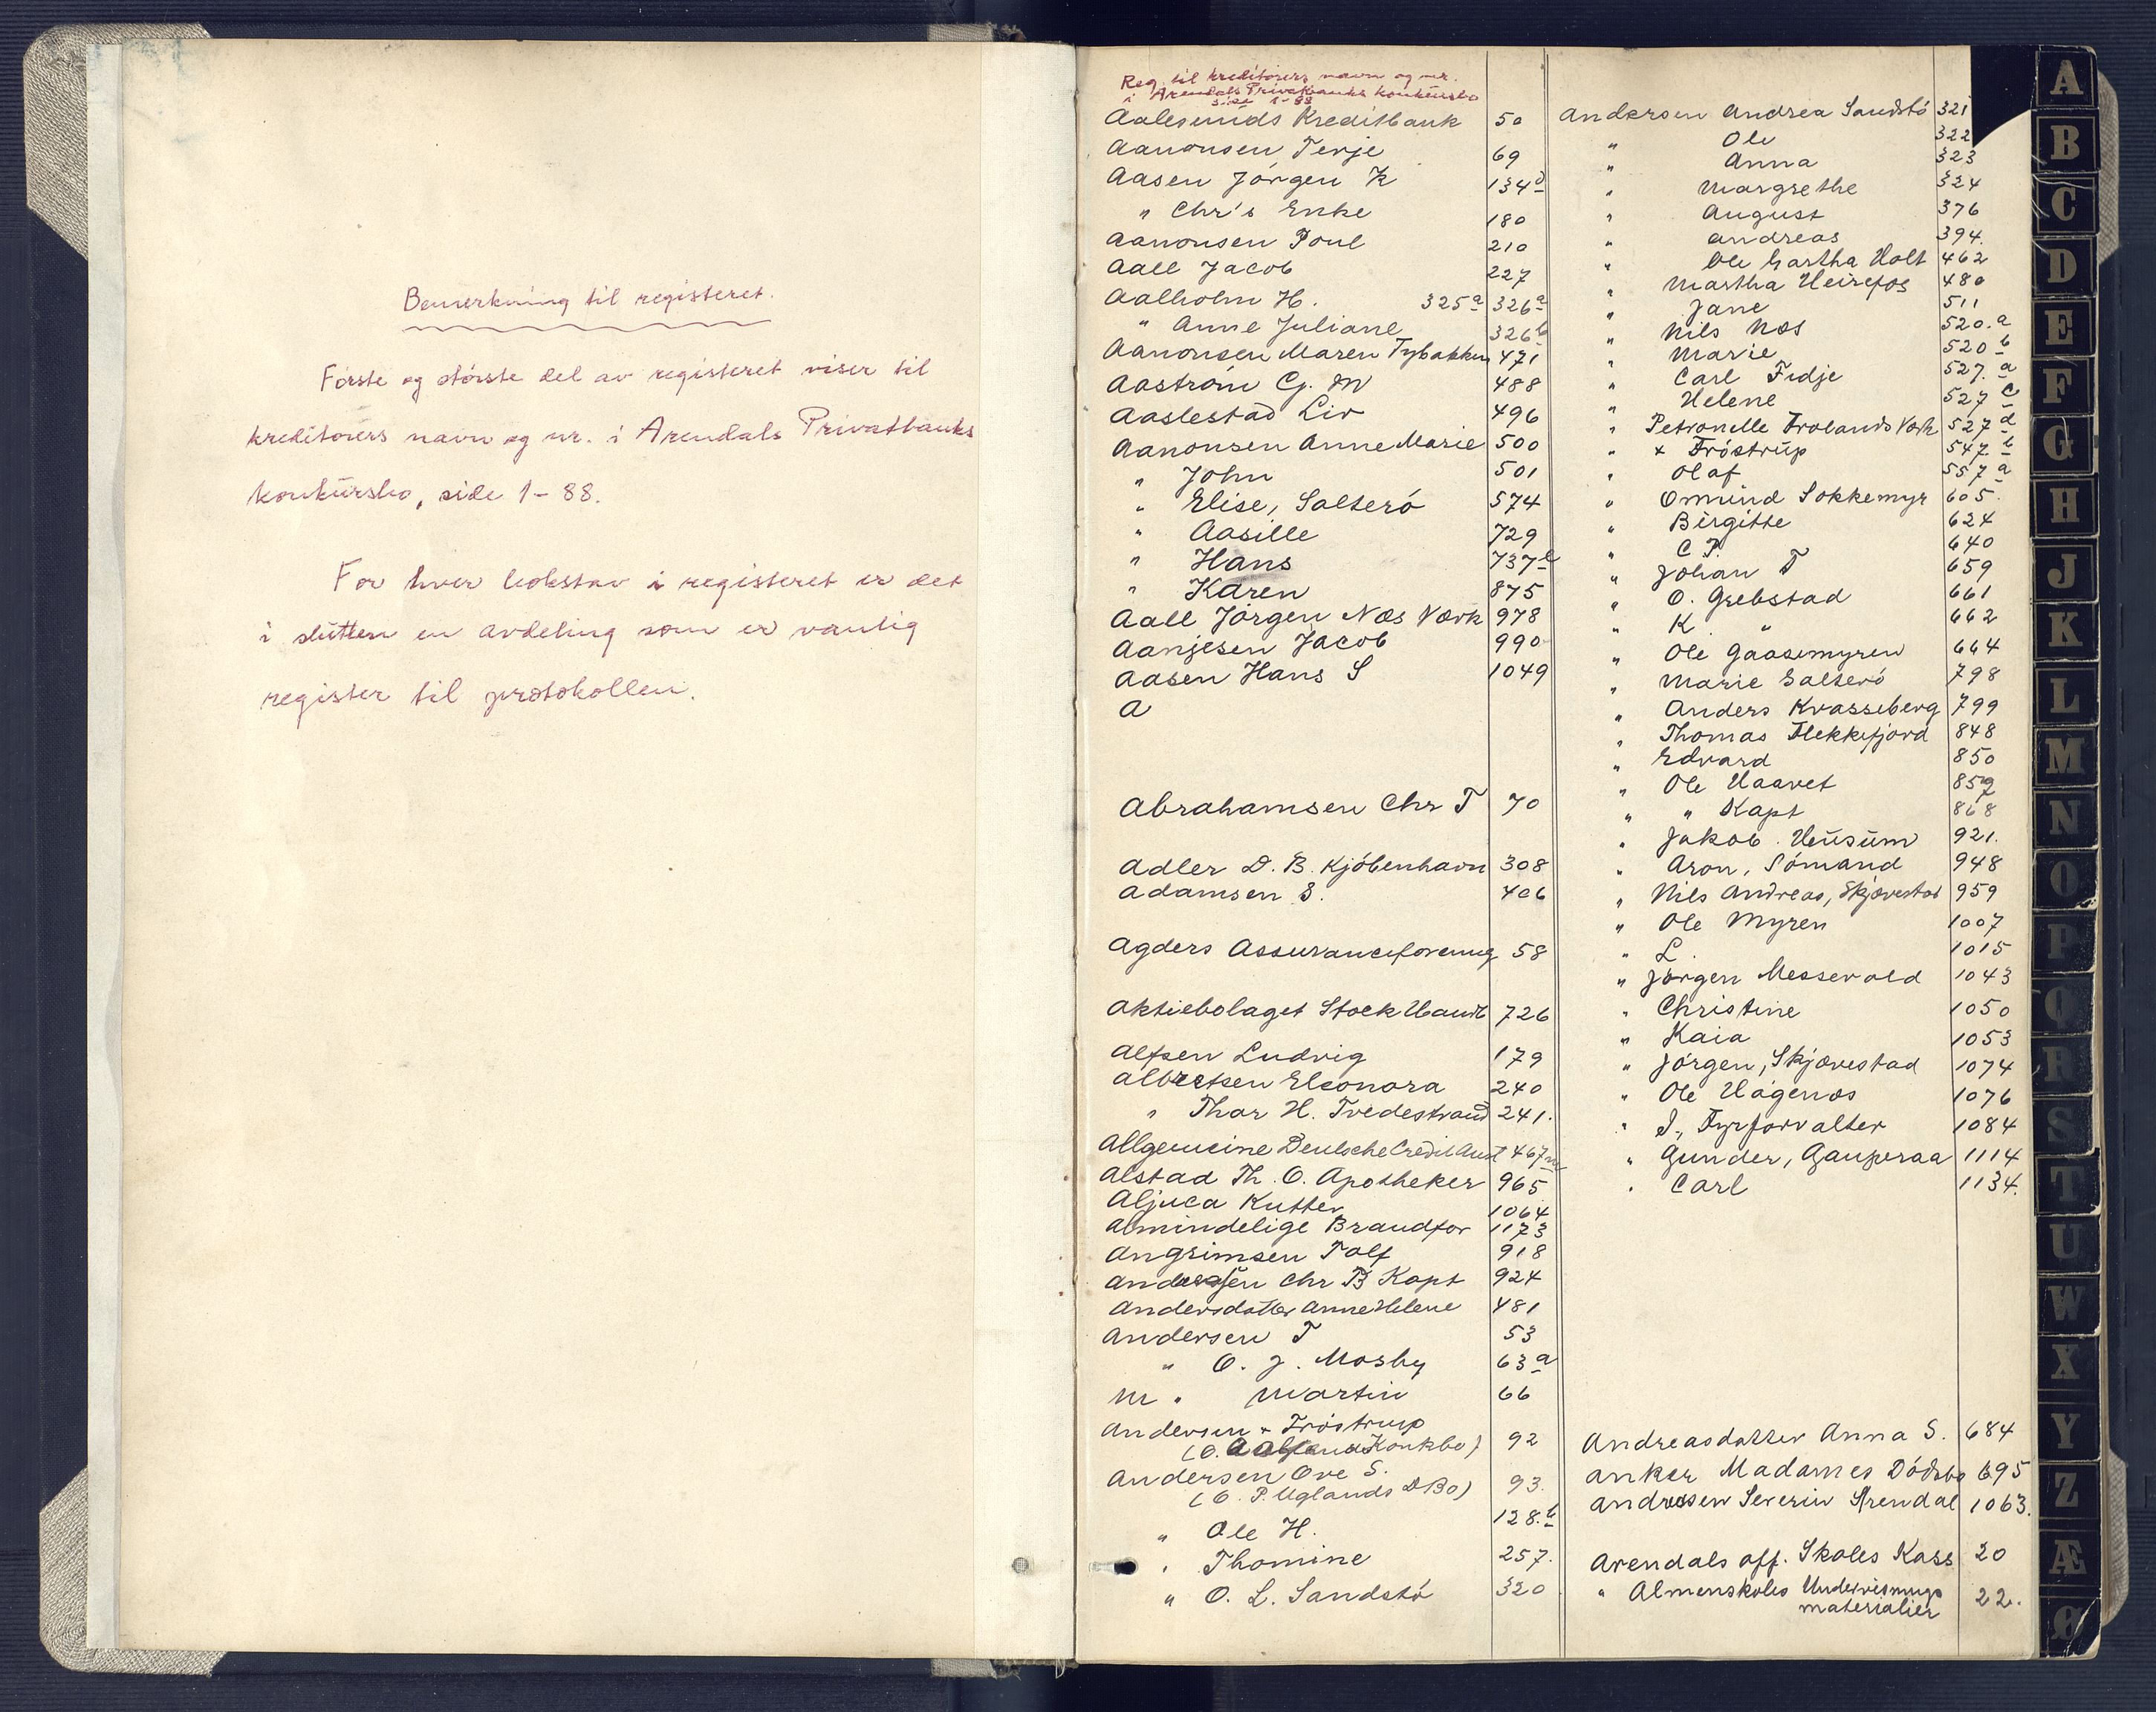 Bemerkning til registeret.
Første og største del av registeret viser til
kreditorers navn og nr. i Arendals Privatbanks
konkursbo, side 1-88.
For hver bokstav i registeret er det
i slutten en avdeling som er vanlig
register til protokollen.
Reg. til kreditorers navn og nr.
i Arendals Privatbanks konkursbo
side 1-88
Aalesunds Kreditbank 50
Aanonsen, Terje 69
Aasen Jørgen K 134d
" Chr's Enke 180
Aanonsen Poul 210
Aall Jacob 227
Aalholm H. 325a 326a
" Anne Juliane 326b
Aanonsen Maren Tybakken 471
Aastrøm G. M 488
Aaslestad Liv 496
Aanonsen Anne Marie 500
" John 501
" Elise, Salterø 574
" Aasille 729
" Hans 737b
" Karen 875
Aall Jørgen Næs Værk 978
Aanjesen Jacob 990
Aasen Hans S 1049
A
Abrahamsen Chr T 70
Adler D. B. Kjøbenhavn 308
Adamsen S. 406
Agders Assuranceforening 58
Aktiebolaget Stock Handb 726
Alfsen Ludvig 179
Albretsen Eleonora 240
" Thor H. Tvedestrand 241.
Allgemeine Deutsche Credit Anst 467m
Alstad Th. O. Apotheker 965
Aljuca Kutter 1064
Almindelige Brandfor 1173
Angrimsen Tolf 918
Andersen Chr B Kapt 924
Andersdatter Anne Helene 481
Andersen T 53
" O. J. Mosby 63a
m " Martin 66
Andersen + Frøstrup
(O. Konkbo) 92
Andersen Ove S.
(O. P. Uglands DBo) 93.
" Ole H. 128.b
" Thomine 257.
" O. L. Sandstø 320
Andersen Andrea Sandstø 321
" Ole 322
" Anna 323
" Margrethe 324
" August 376
" Andreas 394.
" Ole Gartha Holt 462
" Martha Heirefos 480
" Jane 511
" Nils Næs 520.a
" Marie 520b
" Carl Fidje 527.a
" Helene 527c
" Petronelle Frolands Værk 527d
" + Frøstrup 547b
" Olaf 557a
" Omund Sokkemyr 605.
" Birgitte 624
" C P. 640
" Johan T 659
" O. Grebstad 661
" K. " 662
" Ole Gaasemyren 664
" Marie Salterø 798
" Anders Kvasseberg 799
" Thomas Flekkefjord 848
" Edvard 850
" Ole Haavet 859
" " Kapt 868
" Jakob. Heusum 921.
" Aron, Sømand 948
" Nils Andreas, Skjævestad 959
" Ole Myren 1007
" L. 1015
" Jørgen Messevold 1043
" Christine 1050
" Kaia 1053
" Jørgen, Skjævestad 1074
" Ole Hagenæs 1076
" J., Fyrforvalter 1084
" Gunder, Gauperaa 1114
" Carl 1134.
Andreasdatter Anna S. 684
Anker Madames Dødsbo 695
Andresen Severin Arendal 1063.
Arendals off. Skoles Kass 20
" Almenskoles Undervisnings
materialier 22.
A
B
C
D
E
F
G
H
J
K
L
M
N
O
P
Q
R
S
T
U
W
X
Y
Z
Æ
Ø